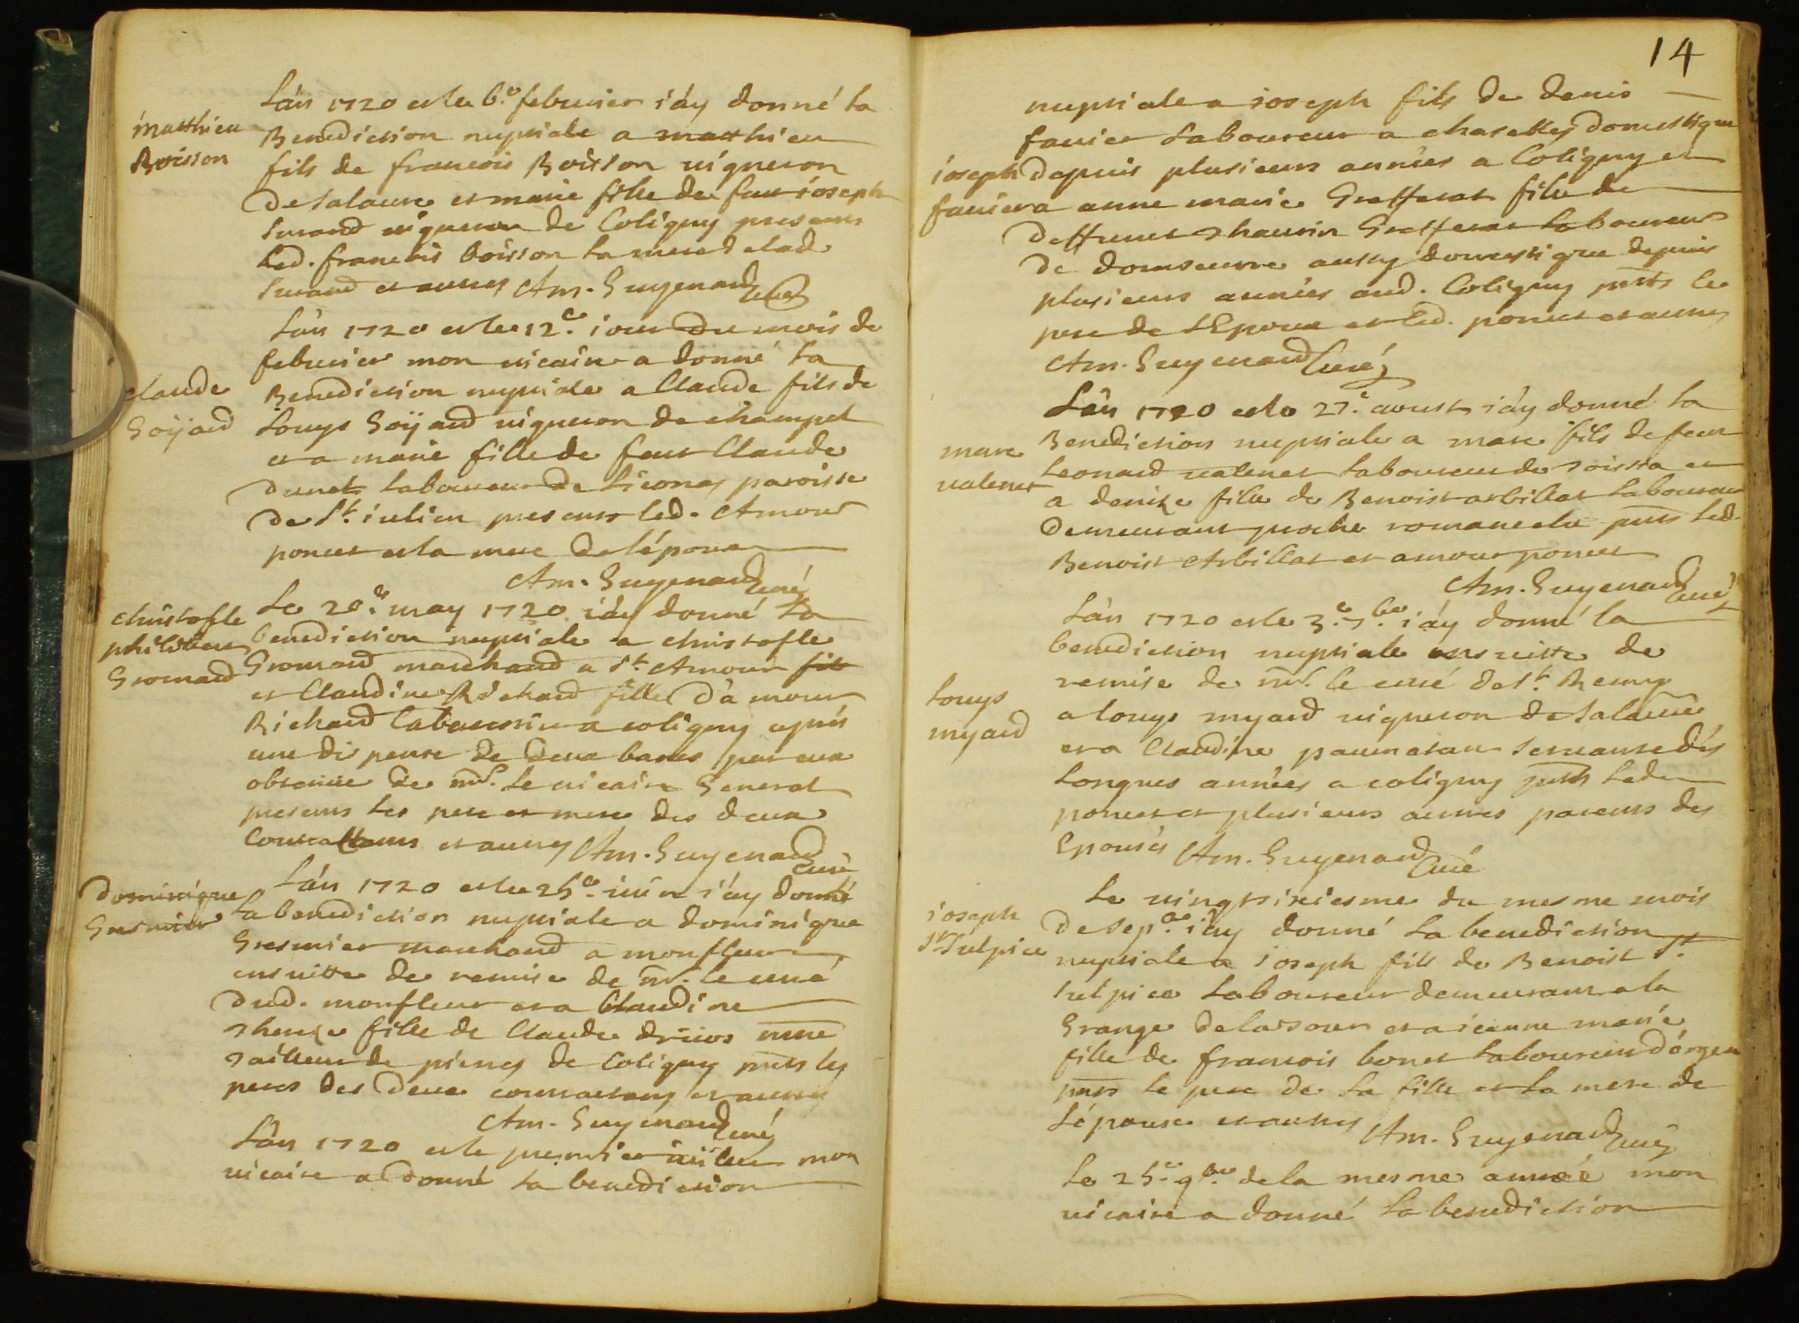 Lán 1720 et le 6.e febvrier i'áy donné la
matthieu
Boisson
Benediction nuptiale a matthieu
fils de francois Boisson vigneron
de salavre et marie fille de feu ioseph
vigneron de Coligny presens
led. francois boisson la mere de lad.
et autres Am. Guyenard curé
Lán 1720 et le 12.e iour du mois de
febvrier mon vicaire a donné la
claude
Goÿard
Benediction nuptiale a Claude fils de
Louys Goÿard vigneron de champel
et a marie fille de feu Claude
laboureur de paroisse
de St. iulien presens led. Amour
poncet et la mere de lépoux
Am. Guyenard curé
christofle
philibert
Gromard
Le 20.e may 1720 iáy donné la
benediction nuptiale a christofle
Gromard marchand a St. Amour
et Claudine Richard fille d'amour
Richard a coligny aprés
une dispense de deux bancs par eux
obtenue de mr. le vicaire General
presens les pere et mere des deux
Contractans et autres Am. Guyenard
curé
dominique
Gresmier
Lán 1720 et le 25.e iuin i'áy donné
la benediction nuptiale a dominique
Gresmier marchand a monfleur
ensuitte de remise de mr. le curé
dud. monfleur et a Claudine
fille de Claude
tailleur de pierres de Coligny pnts les
peres des deux contractans et autres
Am. Guyenard curé
Lán 1720 et le premier iuillet mon
vicaire a donné la benediction
14
nuptiale a ioseph fils de denis
favier laboureur a chaselles domestique
ioseph
favier
depuis plusieurs années a Coligny et
a anne marie Greffeat fille de
deffunct Greffeat laboureur
de domseurre aussy domestique depuis
plusieurs années aud. Coligny pnts le
pere de l'Epoux et led. poncet et autres
Am. Guyenard Curé
Lán 1720 et le 27.e aoust i'áy donné la
marc
vatenet
Benediction nuptiale a marc fils de feu
Leonard vatenet laboureur de toissia et
a denize fille de Benoist arbillat laboureur
demeurant proche pnts led.
Benoist Arbillat et amour poncet
Am. Guyenard curé
Lán 1720 et le 3.e 7.bre i'áy donné la
benediction nuptiale ensuitte de
remise de mr. le curé de St. Remy
Louys
myard
a louys myard vigneron de salavre
et a Claudine servante dés
longues années a coligny pnts led.
poncet et plusieurs autres parens des
Epousés Am. Guyenard curé
Le vingtsixiesme du mesme mois
ioseph
St. Sulpice
de sep.bre i'áy donné la benediction
nuptiale a ioseph fils de Benoist St.
sulpice laboureur demeurant a la
Grange et a ieanne marie
fille de francois bonet laboureur
pnts le pere de la fille et la mere de
l'épouse et autres Am. Guyenard curé
Le 25.e 9.bre de la mesme année mon
vicaire a donné la benediction